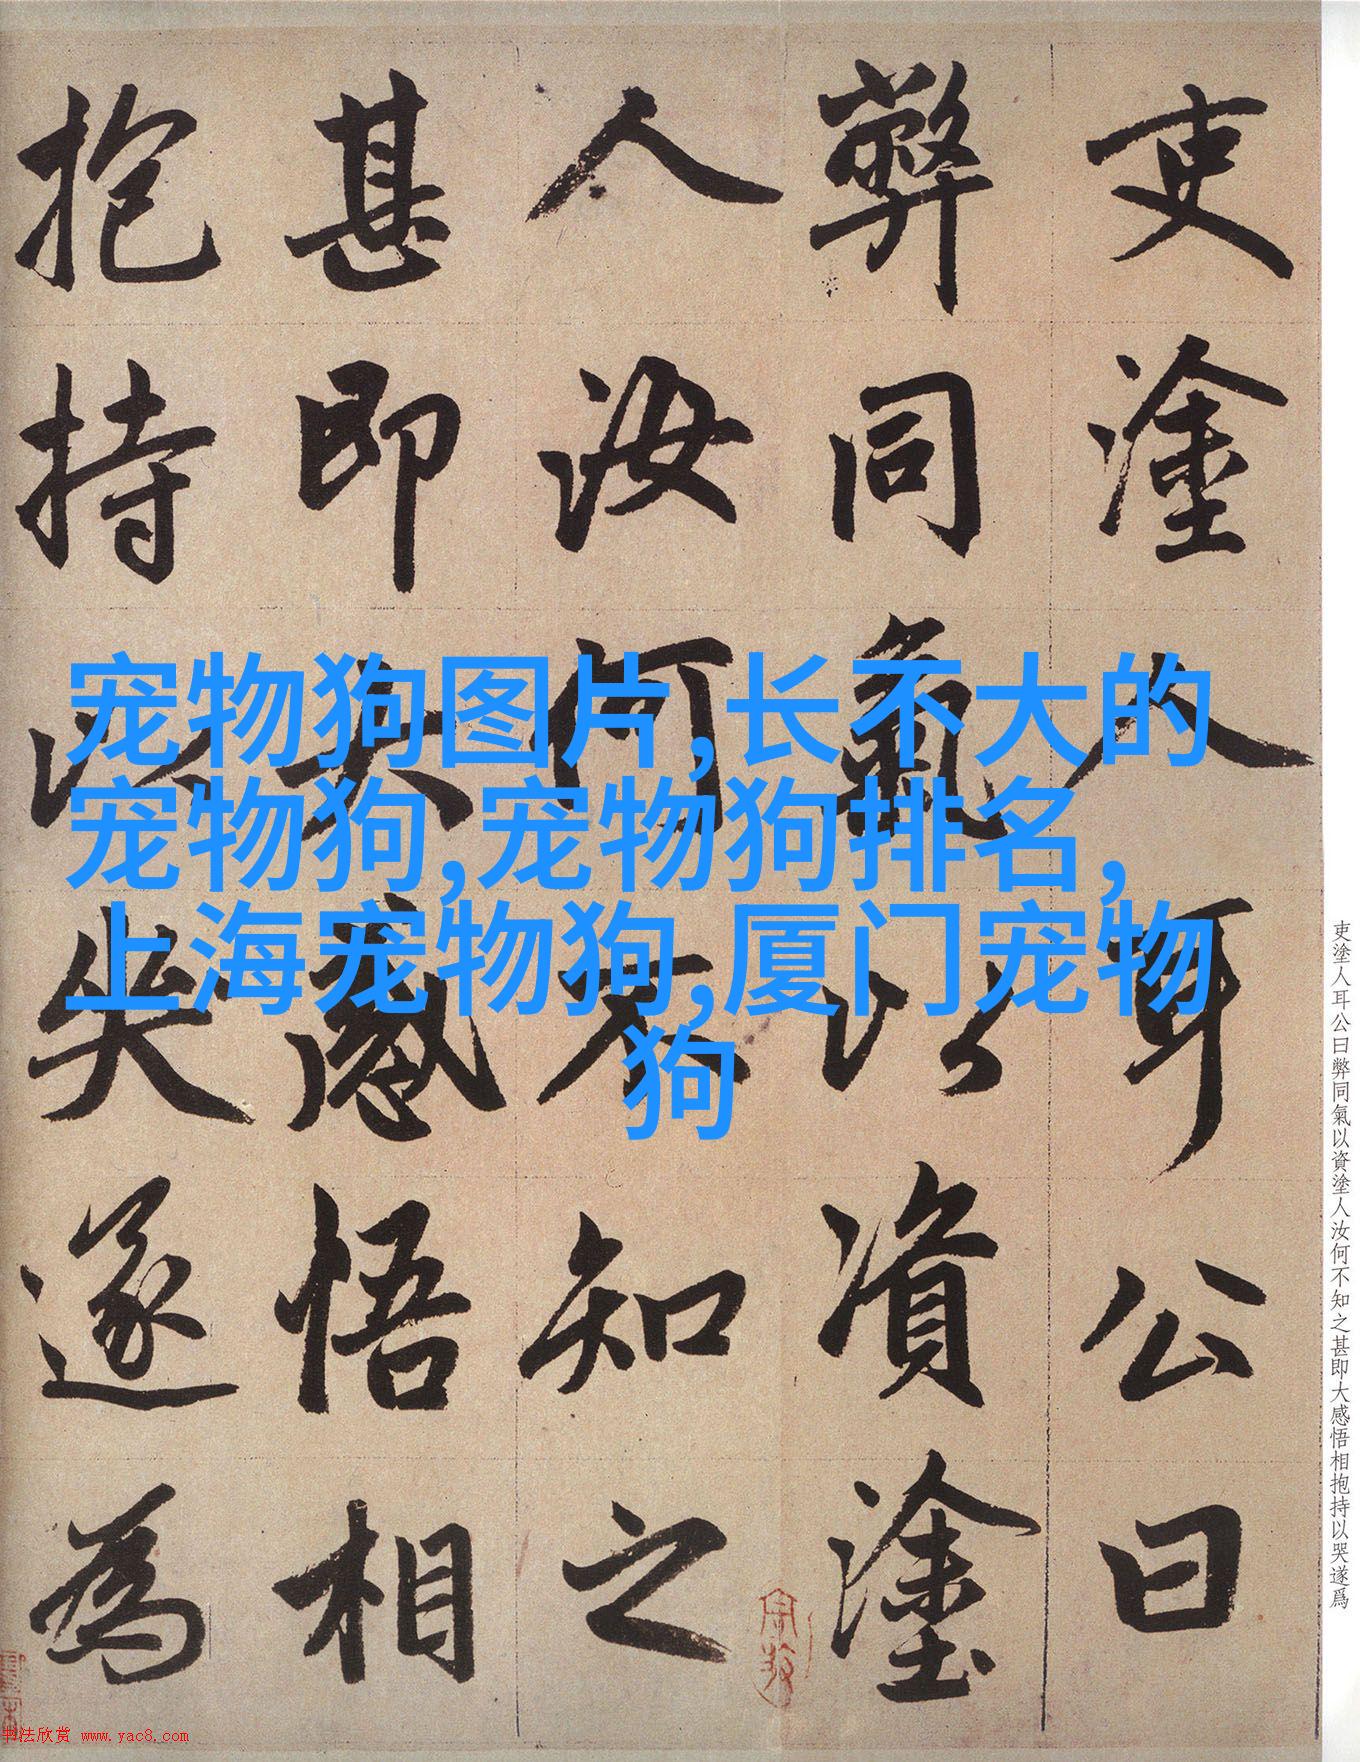 吏塗人耳公曰
弊同氣以資塗
人汝何不知之
甚即大感悟相
抱持以哭遂為
宠物狗图片,长不大的
宠物狗,宠物狗排名,
上海宠物狗,厦门宠物
狗
吏塗人耳公曰弊同氣以資塗人汝何不知之甚即大感悟相抱持以哭遂爲
书法欣赏 www.yac8.com